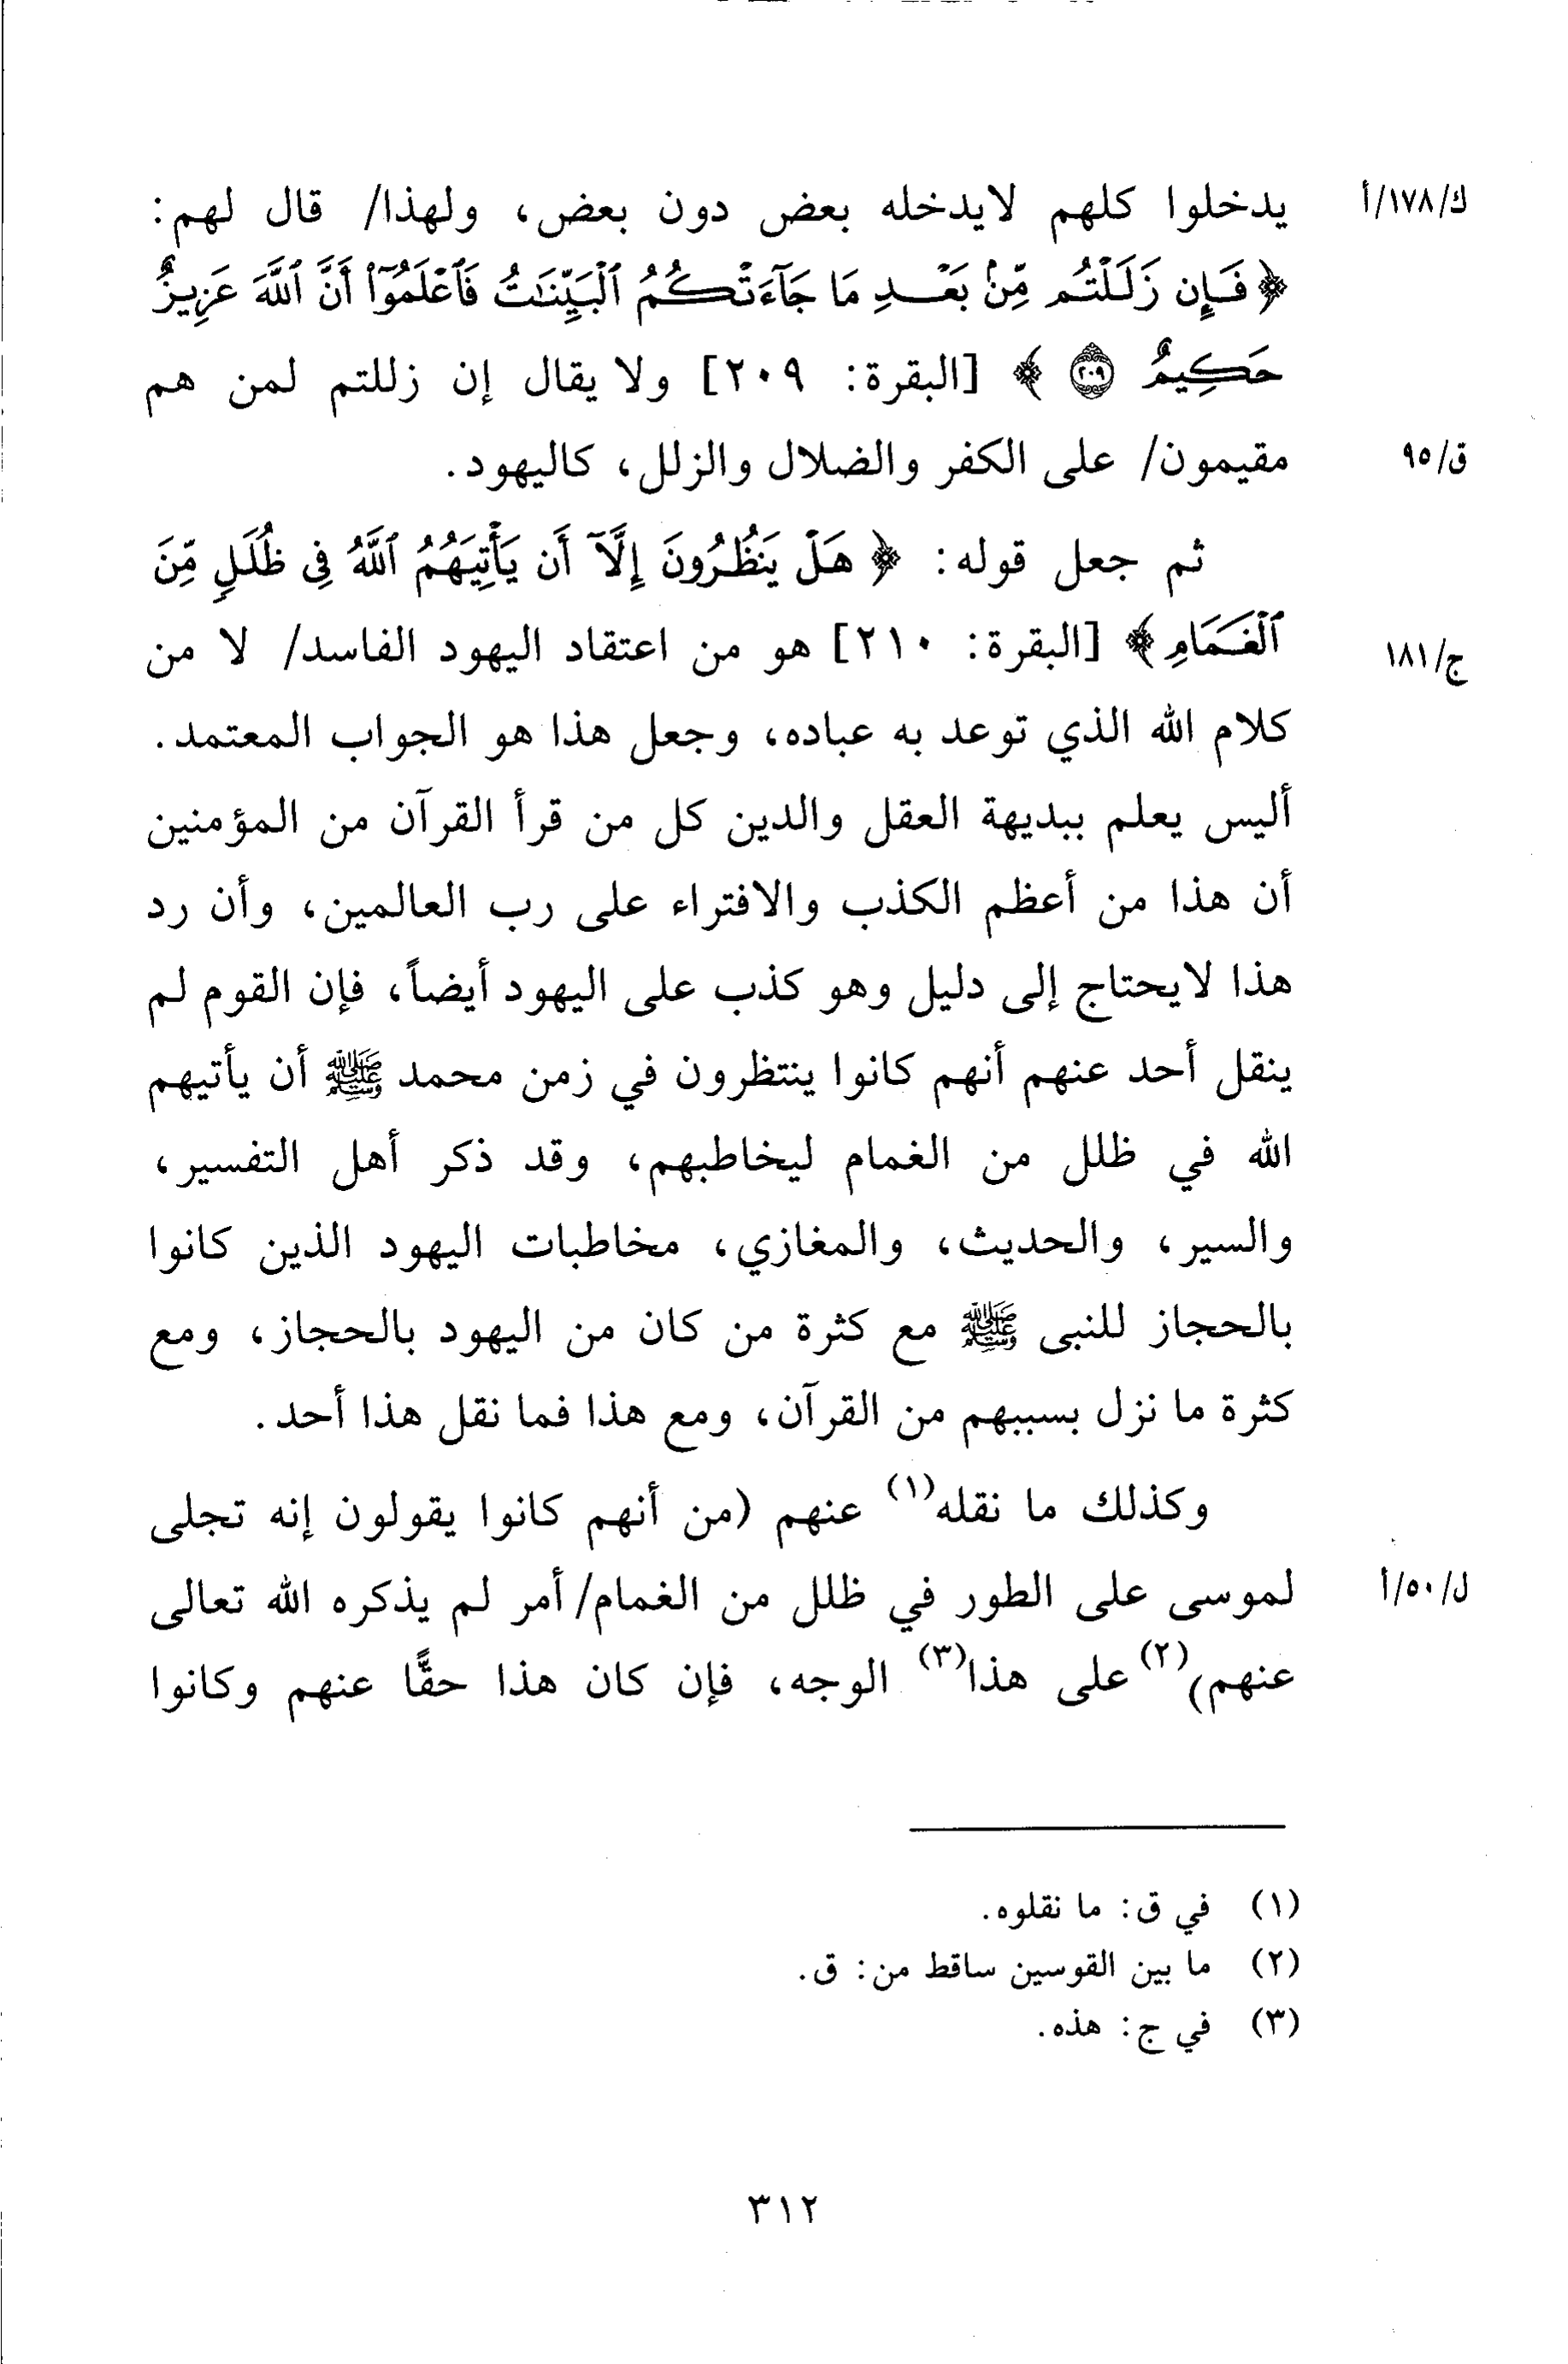 ك/١٧٨/أ يدخلوا كلهم لايدخله بعض دون بعض، ولهذا/ قال لهم:
﴿ فَإِن زَلَلْتُم مِّنۢ بَعْدِ مَا جَآءَتْكُمُ ٱلْبَيِّنَٰتُ فَٱعْلَمُوٓا۟ أَنَّ ٱللَّهَ عَزِيزٌ
حَكِيمٌ ٢٠٩ ﴾ [البقرة: ٢٠٩] ولا يقال إن زللتم لمن هم
ق/٩٥ مقيمون/ على الكفر والضلال والزلل، كاليهود.
ثم جعل قوله: ﴿ هَلْ يَنظُرُونَ إِلَّآ أَن يَأْتِيَهُمُ ٱللَّهُ فِى ظُلَلٍ مِّنَ
ج/١٨١ ٱلْغَمَامِ ﴾ [البقرة: ٢١٠] هو من اعتقاد اليهود الفاسد/ لا من
كلام الله الذي توعد به عباده، وجعل هذا هو الجواب المعتمد.
أليس يعلم ببديهة العقل والدين كل من قرأ القرآن من المؤمنين
أن هذا من أعظم الكذب والافتراء على رب العالمين، وأن رد
هذا لايحتاج إلى دليل وهو كذب على اليهود أيضاً، فإن القوم لم
ينقل أحد عنهم أنهم كانوا ينتظرون في زمن محمد ﷺ أن يأتيهم
الله في ظلل من الغمام ليخاطبهم، وقد ذكر أهل التفسير،
والسير، والحديث، والمغازي، مخاطبات اليهود الذين كانوا
بالحجاز للنبى ﷺ مع كثرة من كان من اليهود بالحجاز، ومع
كثرة ما نزل بسببهم من القرآن، ومع هذا فما نقل هذا أحد.
وكذلك ما نقله(١) عنهم (من أنهم كانوا يقولون إنه تجلى
ل/٥٠/أ لموسى على الطور في ظلل من الغمام/ أمر لم يذكره الله تعالى
عنهم)(٢) على هذا(٣) الوجه، فإن كان هذا حقًّا عنهم وكانوا
(١) في ق: ما نقلوه.
(٢) ما بين القوسين ساقط من: ق.
(٣) في ج: هذه.
٣١٢